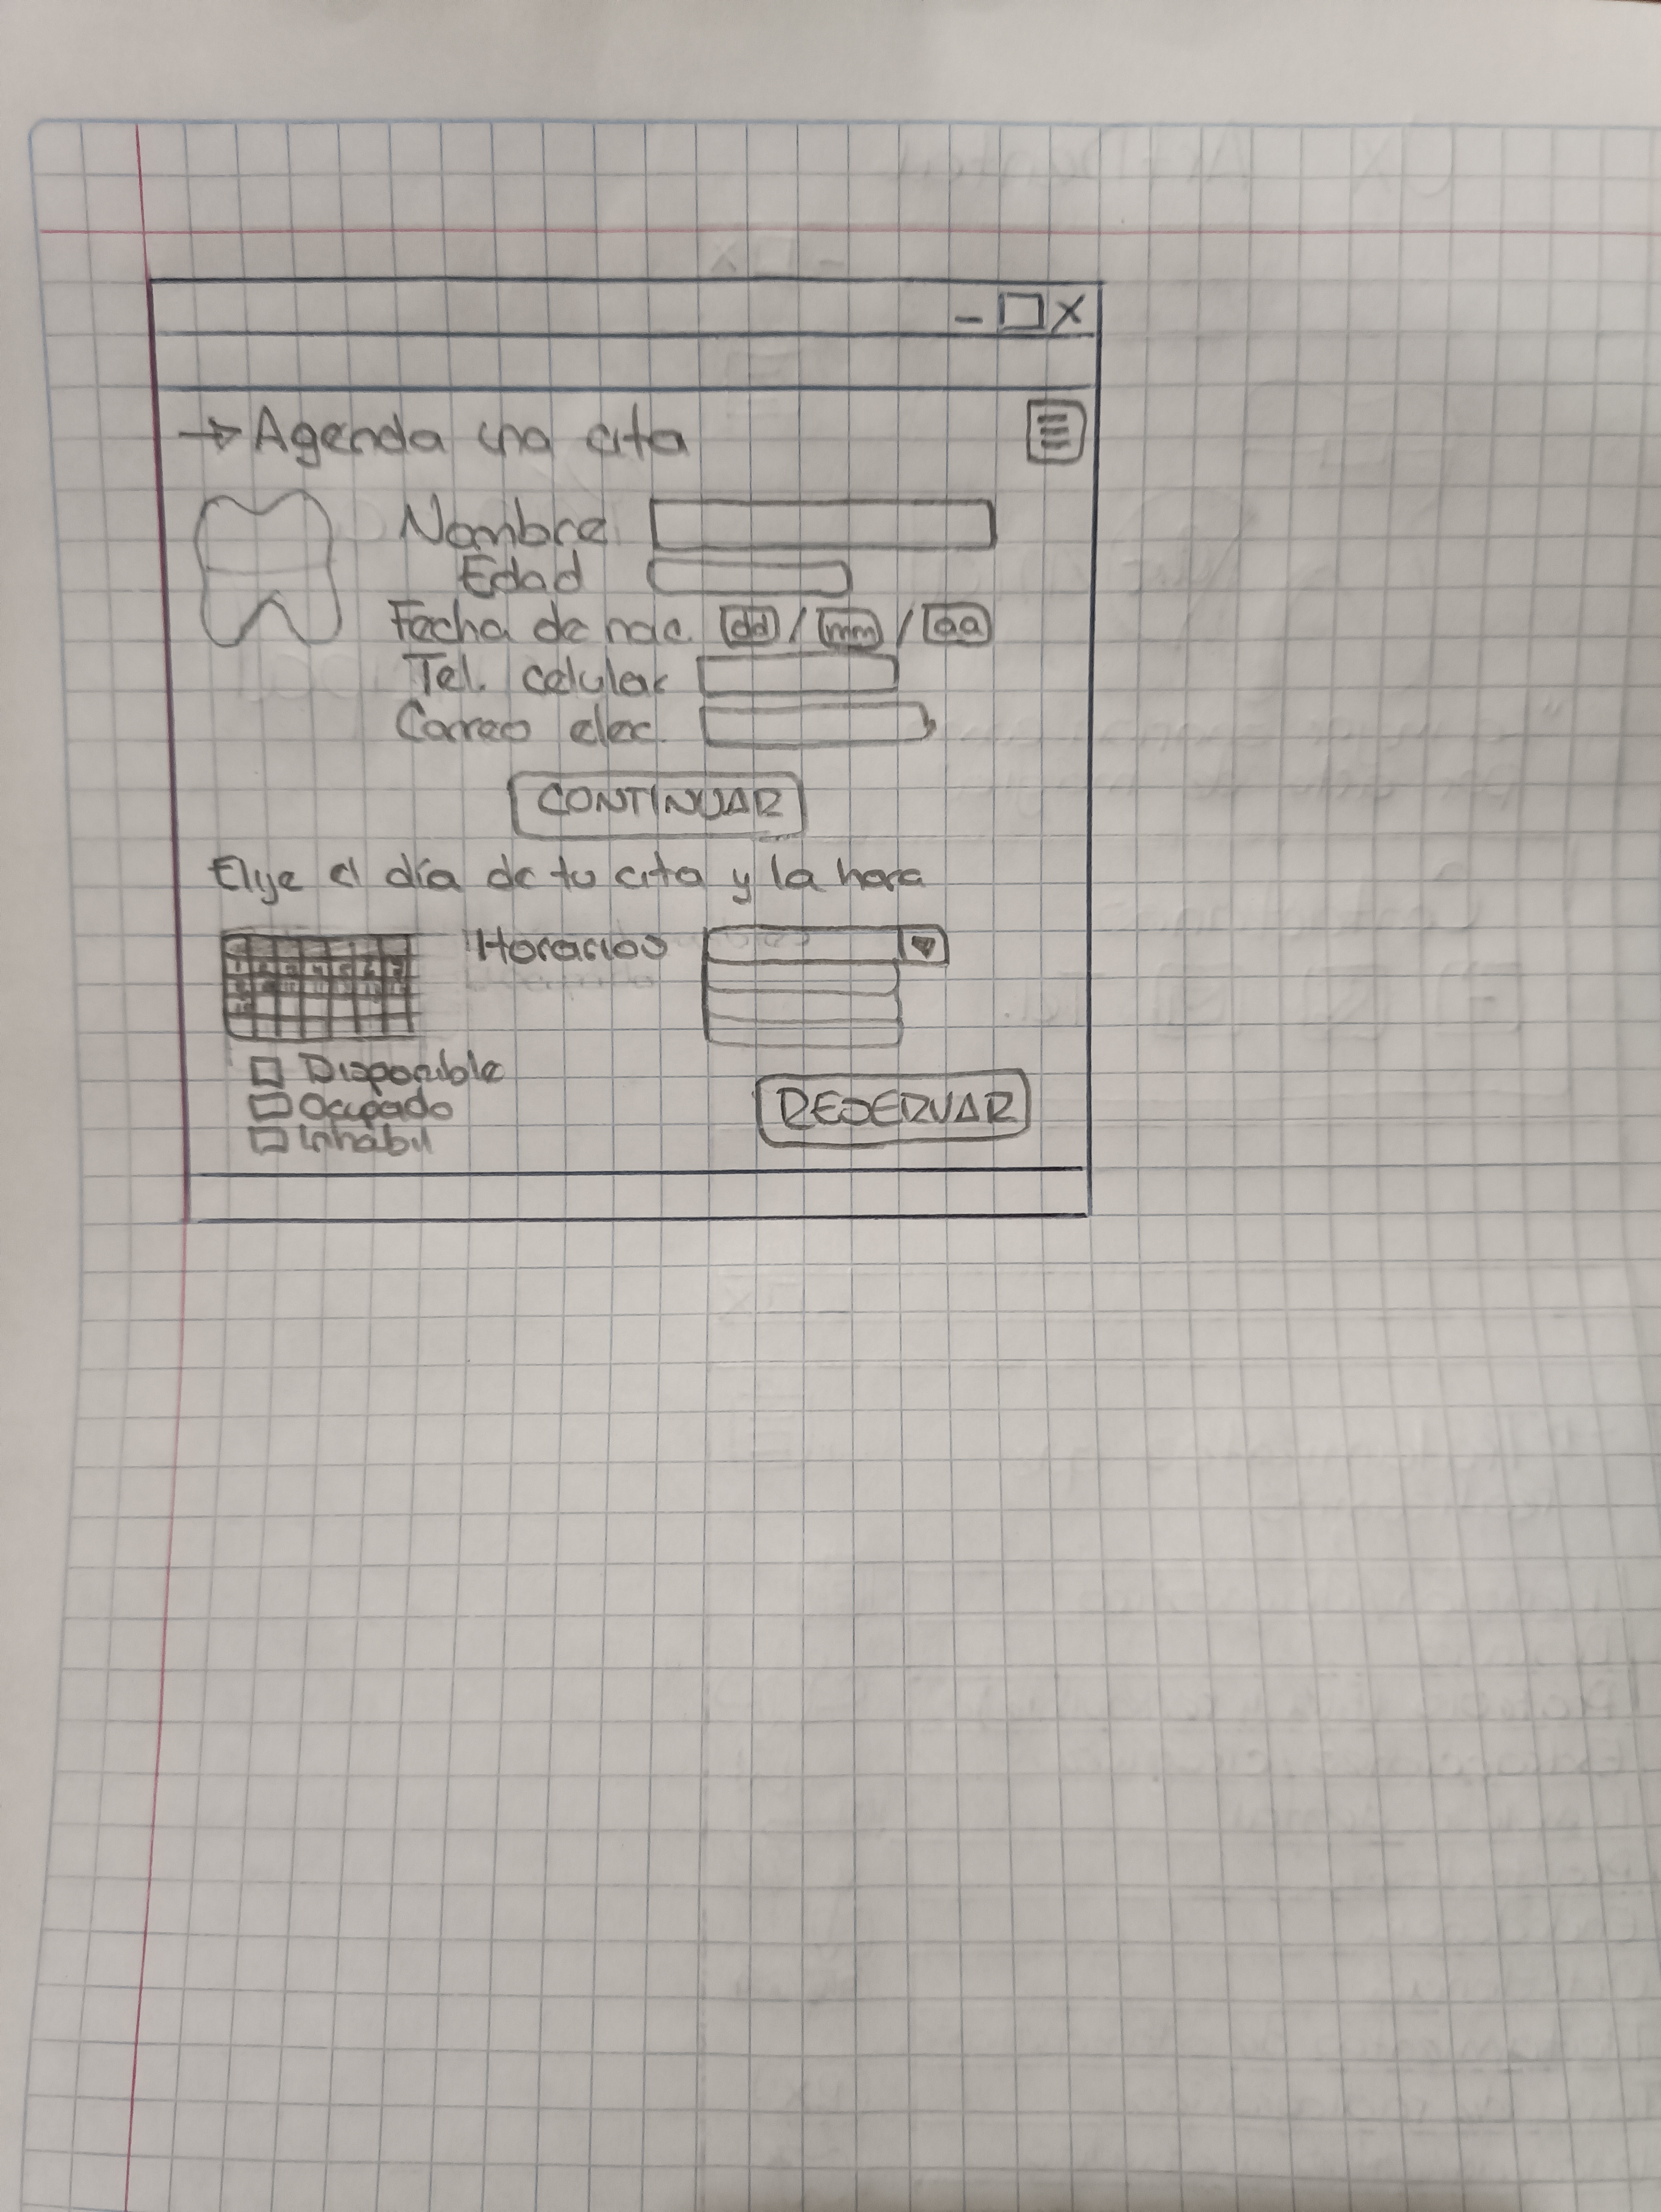 → Agenda una cita
Nombre
Edad
Fecha de nac. dd / mm / aa
Tel. celular
Correo elec.
CONTINUAR
Elije el día de tu cita y la hora
Horarios
Disponible
Ocupado
Inhabil
RESERVAR